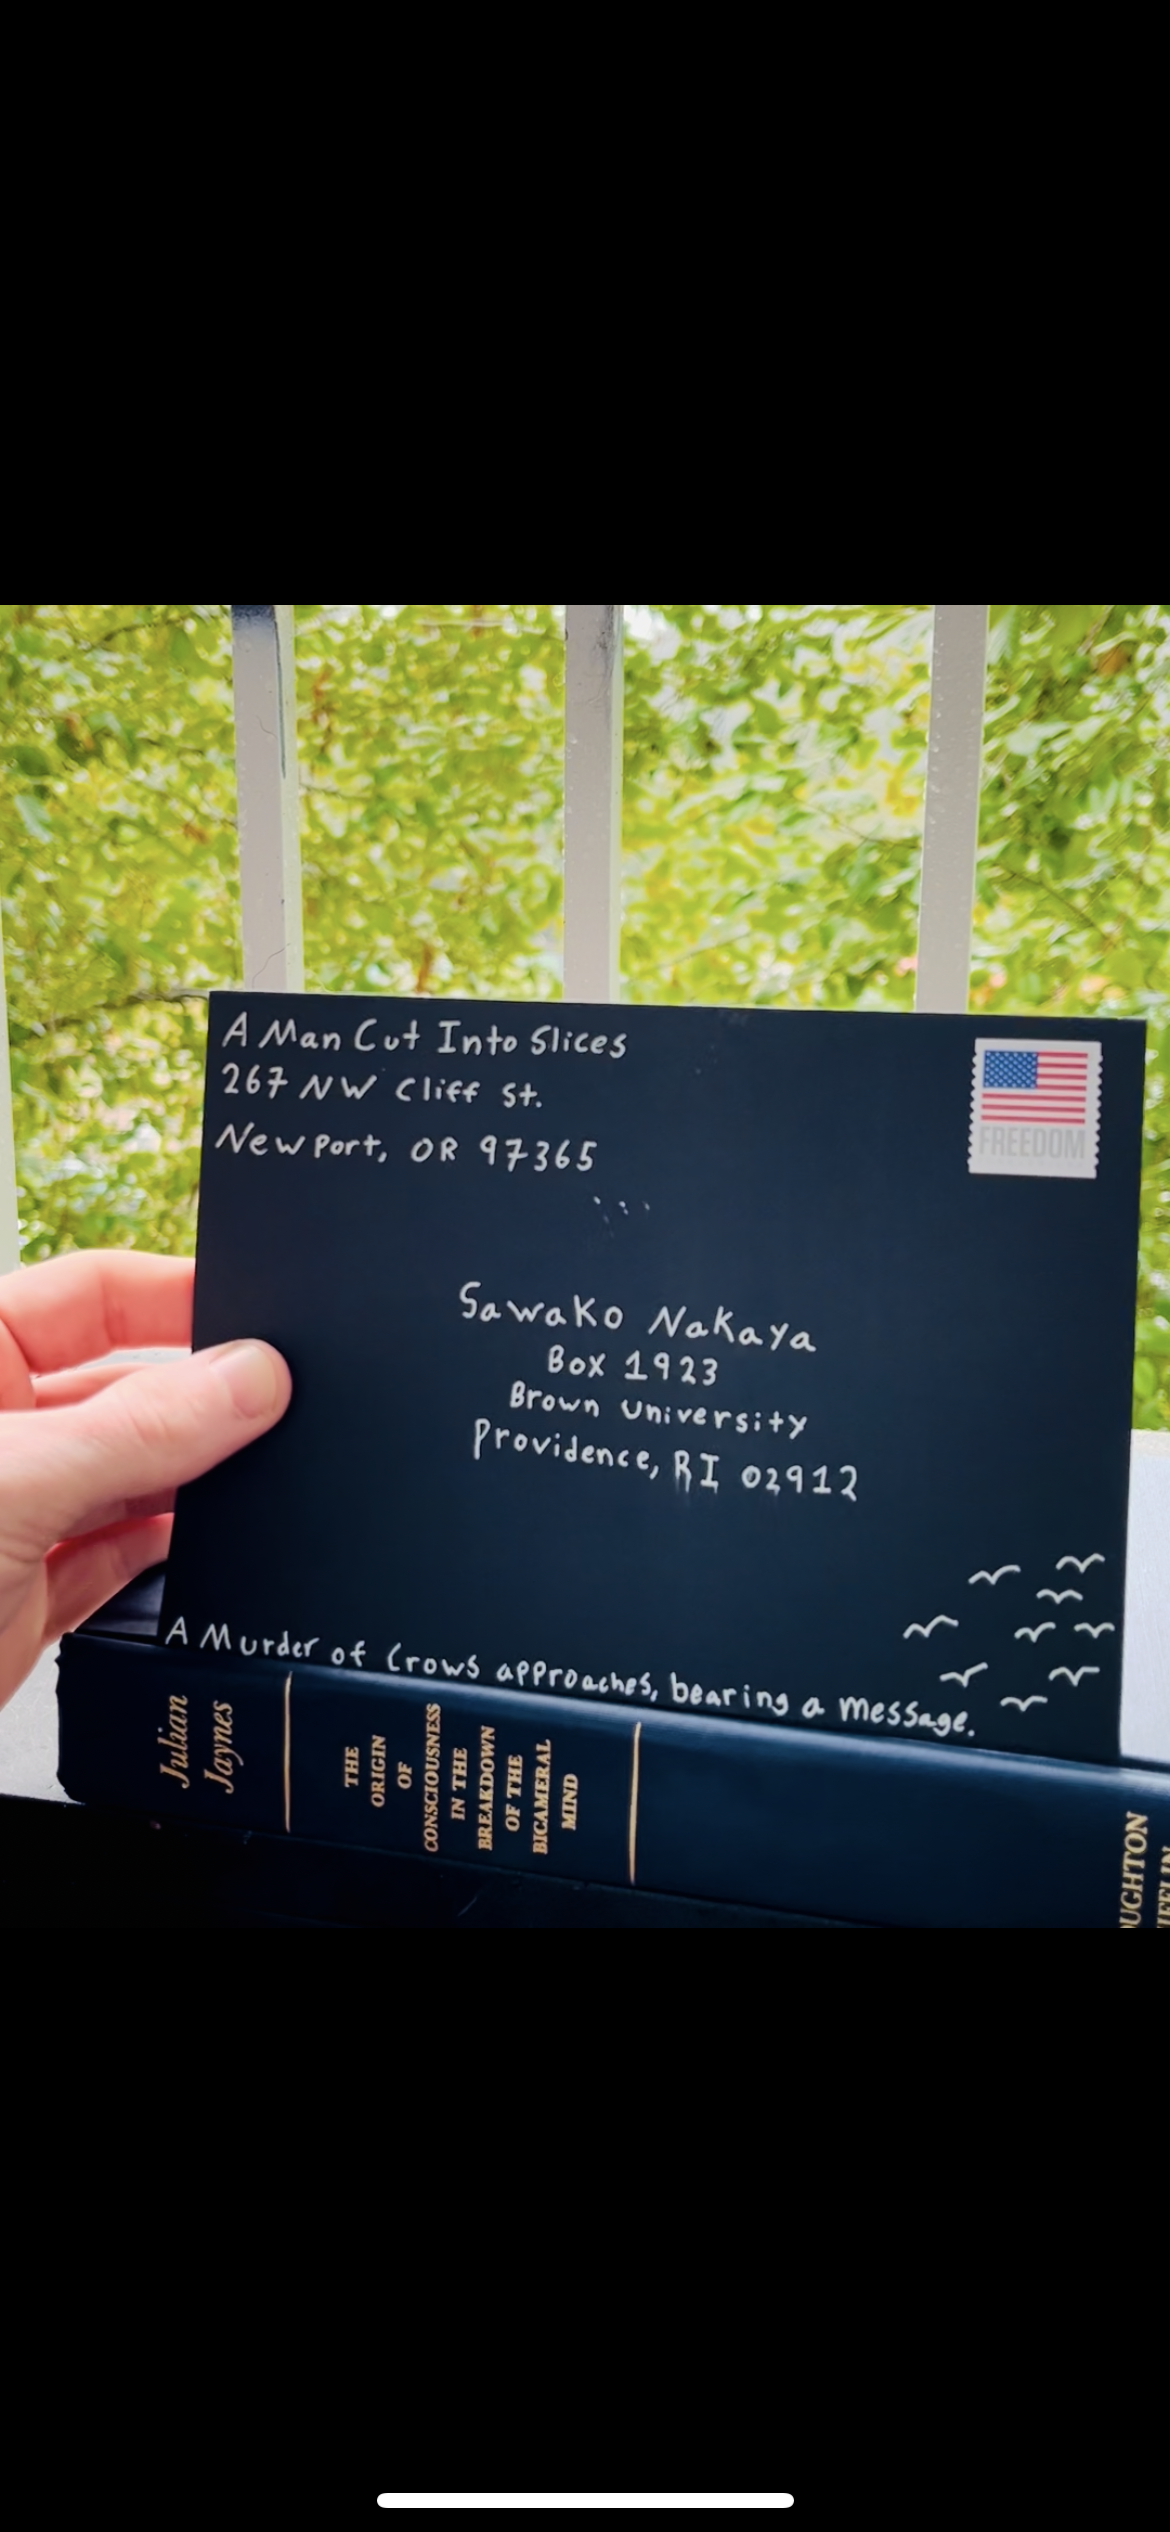 A Man Cut Into Slices
267 NW Cliff St.
Newport, OR 97365
FREEDOM
Sawako Nakaya
Box 1923
Brown University
Providence, RI 02912
A Murder of Crows approaches, bearing a message.
Julian
Jaynes
THE
ORIGIN
OF
CONSCIOUSNESS
IN THE
BREAKDOWN
OF THE
BICAMERAL
MIND